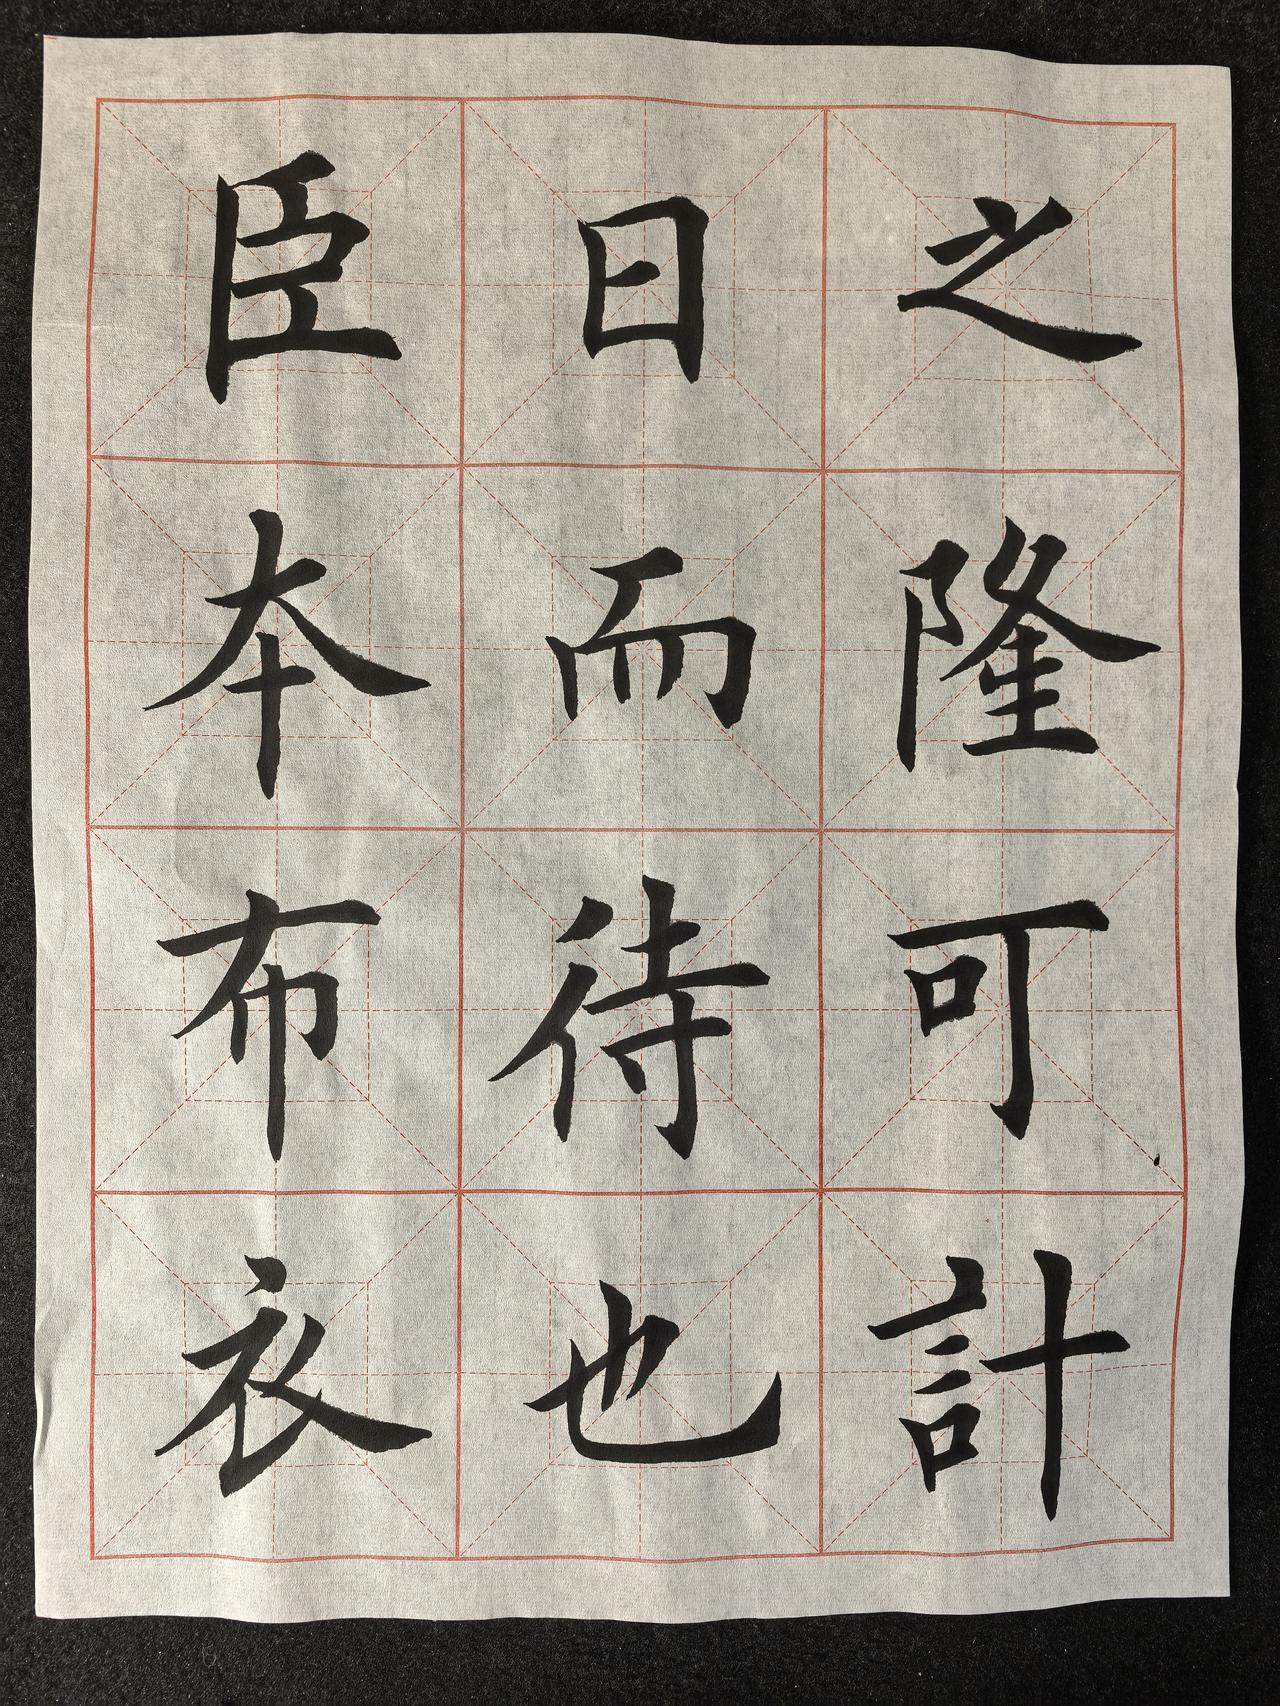 之隆可計
日而待也
臣本布衣